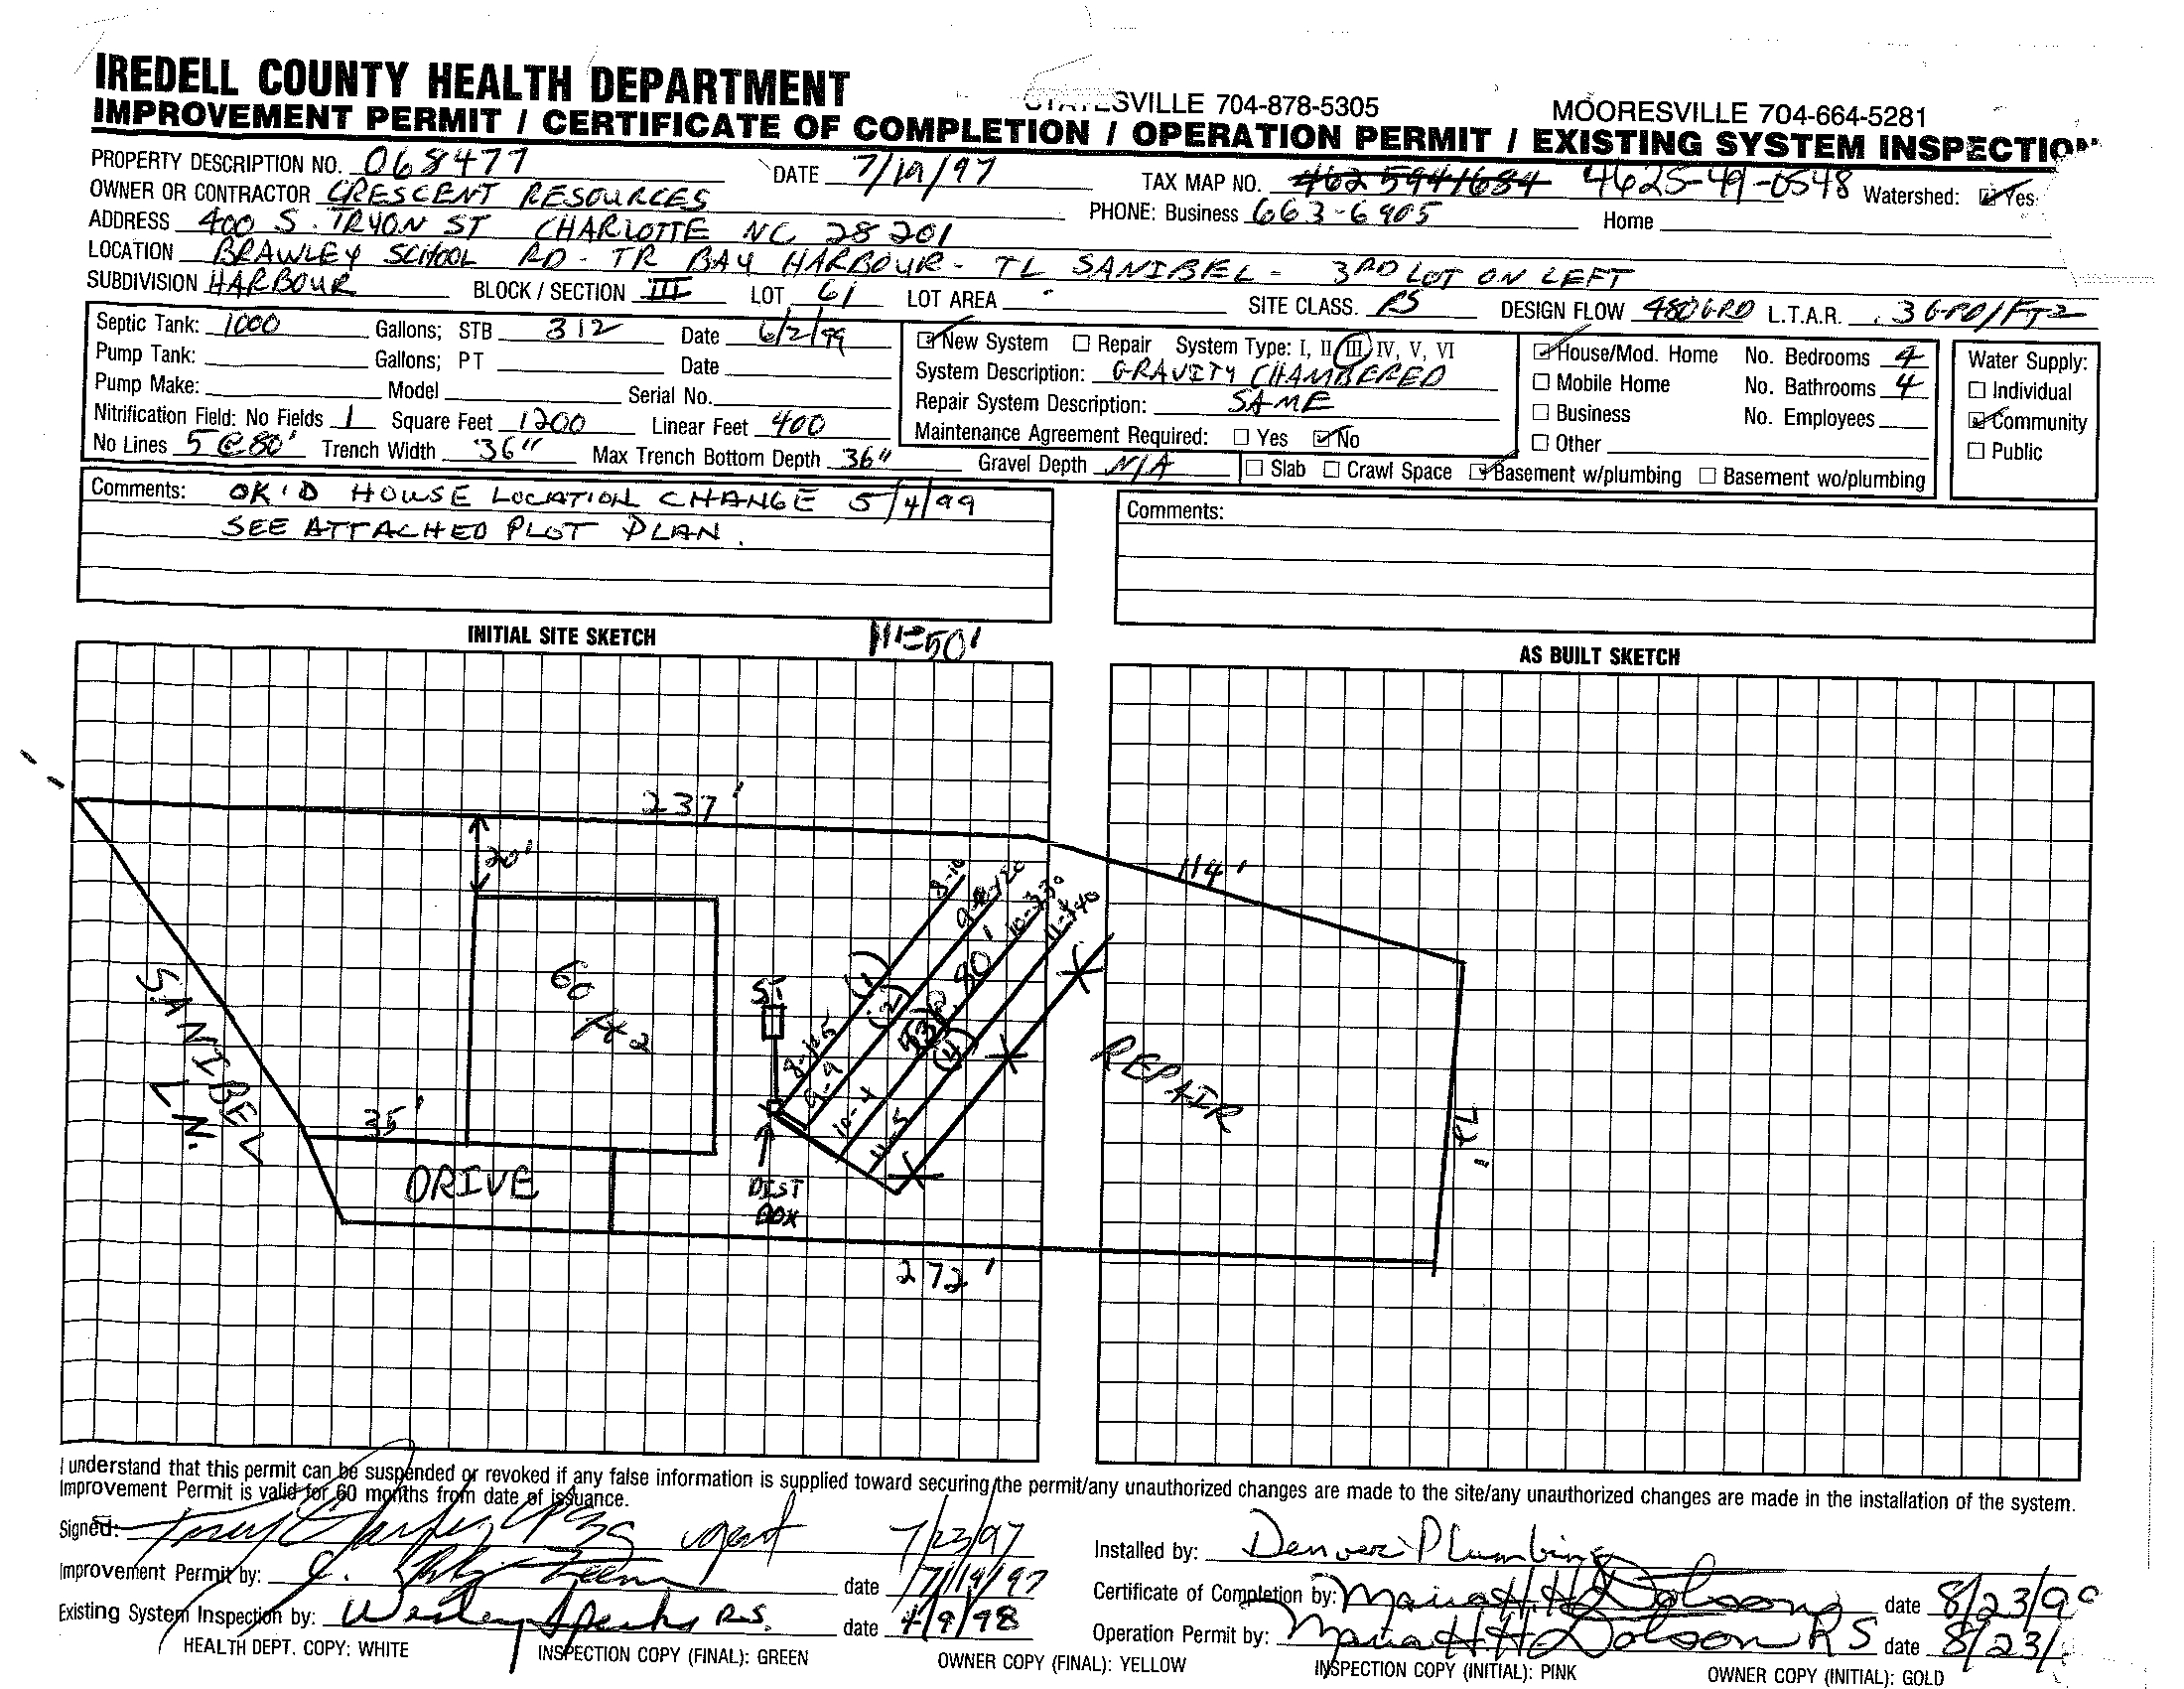 IREDELL COUNTY HEALTH DEPARTMENT
STATESVILLE 704-878-5305 MOORESVILLE 704-664-5281
IMPROVEMENT PERMIT / CERTIFICATE OF COMPLETION / OPERATION PERMIT / EXISTING SYSTEM INSPECTION
PROPERTY DESCRIPTION NO. 068477 DATE 7/19/97 TAX MAP NO. 4625941684 4625-49-0548 Watershed: ☑ Yes
OWNER OR CONTRACTOR CRESCENT RESOURCES PHONE: Business 663-6905 Home
ADDRESS 400 S. TRYON ST CHARLOTTE NC 28201
LOCATION BRAWLEY SCHOOL RD - TR BAY HARBOUR - TL SANIBEL - 3RD LOT ON LEFT
SUBDIVISION HARBOUR BLOCK / SECTION III LOT 61 LOT AREA SITE CLASS. PS DESIGN FLOW 480 GPD L.T.A.R. .3 GPD/FT2
Septic Tank: 1000 Gallons; STB 312 Date 6/2/99
Pump Tank: Gallons; PT Date
Pump Make: Model Serial No.
Nitrification Field: No Fields 1 Square Feet 1200 Linear Feet 400
No Lines 5 @ 80' Trench Width 36" Max Trench Bottom Depth 36" Gravel Depth N/A
☑ New System ☐ Repair System Type: I, II, III, IV, V, VI
System Description: GRAVITY CHAMBERED
Repair System Description: SAME
Maintenance Agreement Required: ☐ Yes ☑ No
☑ House/Mod. Home No. Bedrooms 4
☐ Mobile Home No. Bathrooms 4
☐ Business No. Employees
☐ Other
☐ Slab ☐ Crawl Space ☑ Basement w/plumbing ☐ Basement wo/plumbing
Water Supply:
☐ Individual
☑ Community
☐ Public
Comments: OK'D HOUSE LOCATION CHANGE 5/4/99
SEE ATTACHED PLOT PLAN.
Comments:
INITIAL SITE SKETCH 1"=50'
AS BUILT SKETCH
237'
20'
114'
8-10
60
ST
80'
(1)
(2)
(3)
(4)
8-12.5
9-9
10-4
11-5
SANIBEL
LN.
35'
DRIVE
DIST
BOX
REPAIR
272'
I understand that this permit can be suspended or revoked if any false information is supplied toward securing the permit/any unauthorized changes are made to the site/any unauthorized changes are made in the installation of the system.
Improvement Permit is valid for 60 months from date of issuance.
Signed: agent 7/23/97
Improvement Permit by: date 7/19/97
Existing System Inspection by: Wesley Sparks R.S. date 4/9/98
Installed by: Denver Plumbing
Certificate of Completion by: Maria H. H. Dotson date 8/23/99
Operation Permit by: Maria H. H. Dotson RS date 8/23/
HEALTH DEPT. COPY: WHITE INSPECTION COPY (FINAL): GREEN OWNER COPY (FINAL): YELLOW INSPECTION COPY (INITIAL): PINK OWNER COPY (INITIAL): GOLD